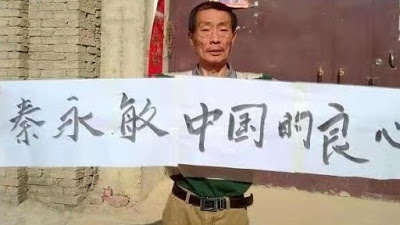 秦永敏 中国的良心